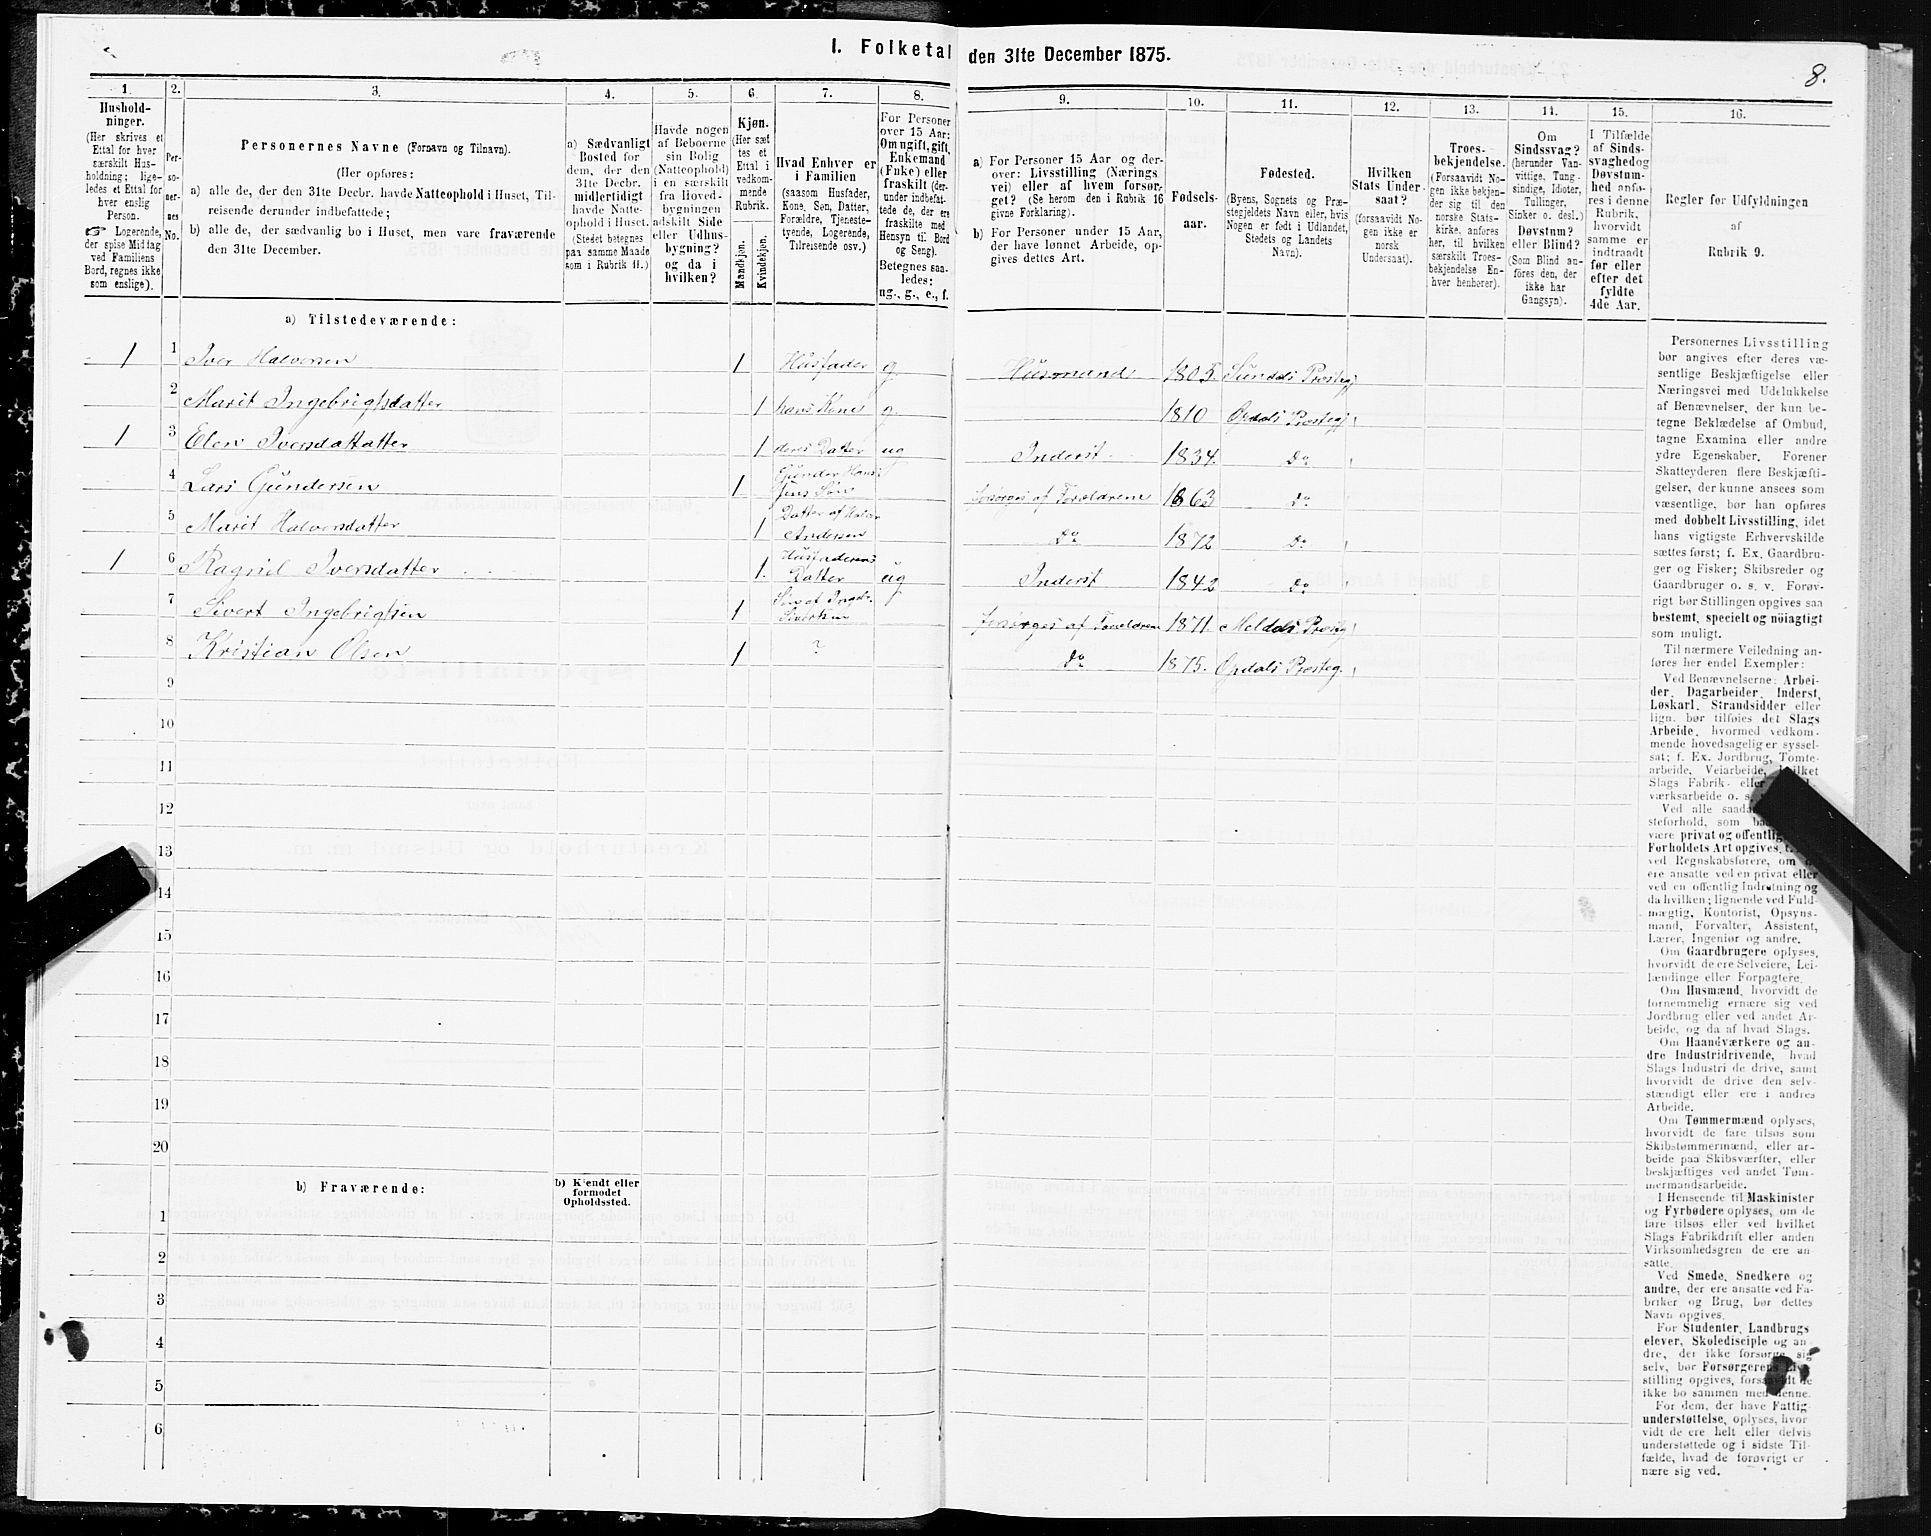 I. Folketal den 31te December 1875.
8.
1.
Hushold-
ninger.
(Her skrives et
Ettal for hver
særskilt Hus-
holdning; lige-
ledes et Ettal for
hver enslig
Person.
☞ Logerende,
der spise Middag
ved Familiens
Bord, regnes ikke
som enslige).
2.
Per-
so-
ner-
nes
No.
3.
Personernes Navne (Fornavn og Tilnavn).
(Her opføres:
a) alle de, der den 31te Decbr. havde Natteophold i Huset, Til-
reisende derunder indbefattede;
b) alle de, der sædvanlig bo i Huset, men vare fraværende
den 31te December.
4.
a) Sædvanligt
Bosted for
dem, der den
31te Decbr.
midlertidigt
havde Natte-
ophold i Huset.
(Stedet betegnes
paa samme Maade
som i Rubrik 11.)
5.
Havde nogen
af Beboerne
sin Bolig
(Natteophold)
i en særskilt
fra Hoved-
bygningen
adskilt Side-
eller Udhus-
bygning?
og da i
hvilken?
6.
Kjøn.
(Her sæt-
tes et
Ettal i
vedkom-
mende
Rubrik.
Mandkjøn.
Kvindekjøn.
7.
Hvad Enhver er
i Familien
(saasom Husfader,
Kone, Søn, Datter,
Forældre, Tjeneste-
tyende, Logerende,
Tilreisende osv.)
8.
For Personer
over 15 Aar:
Om ugift, gift,
Enkemand
(Enke) eller
fraskilt (der-
under indbefat-
tede de, der ere
fraskilte med
Hensyn til Bord
og Seng).
Betegnes saa-
ledes:
ug., g., e., f.
9.
a) For Personer 15 Aar og der-
over: Livsstilling (Nærings-
vei) eller af hvem forsør-
get? (Se herom den i Rubrik 16
givne Forklaring).
b) For Personer under 15 Aar,
der have lønnet Arbeide, op-
gives dettes Art.
10.
Fødsels-
aar.
11.
Fødested.
(Byens, Sognets og Præ-
stegjeldets Navn eller, hvis
Nogen er født i Udlandet,
Stedets og Landets
Navn).
12.
Hvilken
Stats Under-
saat?
(forsaavidt No-
gen ikke er
norsk
Undersaat).
13.
Troes-
bekjendelse.
(Forsaavidt No-
gen ikke bekjen-
der sig til den
norske Stats-
kirke, anføres
her, til hvilken
særskilt Troes-
bekjendelse En-
hver henhører).
14.
Om
Sindssvag?
(herunder Van-
vittige, Tung-
sindige, Idioter,
Tullinger,
Sinker o. desl.)
Døvstum?
eller Blind?
(Som Blind an-
føres den, der
ikke har
Gangsyn).
15.
I Tilfælde
af Sinds-
svaghed og
Døvstum-
hed anfø-
res i denne
Rubrik,
hvorvidt
samme er
indtraadt
før eller
efter det
fyldte
4de Aar.
16.
Regler for Udfyldningen
af
Rubrik 9.
a) Tilstedeværende:
1 1 Iver Halvorsen 1 Husfader g. Husmand 1805. Sundals Prestegj
2 Marit Ingebrigtsdatter 1 hans Kone g. 1810 Opdals Prestegj
1 3 Elen Iversdattatter 1 deres Datter ug Inderst 1834. Do
4 Lars Gundersen 1 Gunder Hans-
Jens Søn forsørges af Forældrene 1863 Do
5 Marit Halvorsdatter 1 Datter af Halvor
Andersen Do 1872 Do
1 6 Ragnil Iversdatter 1. Husfaderens
Datter ug Inderst 1842 Do
7 Sivert Ingebrigtsen 1 Søn af Ingebr.
Sivertsen forsørges af Forældrene 1871. Meldals Presteg
8 Kristian Olsen 1 ? Do 1875. Opdals Presteg.
9
10
11
12
13
14
15
16
17
18
19
20
b) Fraværende:
b) Kjendt eller
formodet
Opholdssted.
1
2
3
4
5
6
Personernes Livsstilling
bør angives efter deres væ-
sentlige Beskjæftigelse eller
Næringsvei med Udelukkelse
af Benævnelser, der kun be-
tegne Beklædelse af Ombud,
tagne Examina eller andre
ydre Egenskaber. Forener
Skatteyderen flere Beskjæfti-
gelser, der kunne ansees som
væsentlige, bør han opføres
med dobbelt Livsstilling, idet
hans vigtigste Erhvervskilde
sættes først; f. Ex. Gaardbru-
ger og Fisker; Skibsreder og
Gaardbruger o. s. v. Forøv-
rigt bør Stillingen opgives saa
bestemt, specielt og nöiagtigt
som muligt.
Til nærmere Veiledning an-
føres her endel Exempler:
Ved Benævnelserne: Arbei-
der, Dagarbeider, Inderst,
Løskarl, Strandsidder eller
lign. bør tilføies det Slags
Arbeide, hvormed vedkom-
mende hovedsagelig er syssel-
sat; f. Ex. Jordbrug, Tomte-
arbeide, Veiarbeide, hvilket
Slags Fabrik- eller
værksarbeide o. s.
Ved alle saada
steforhold, som
være privat og offentlig
Forholdets Art opgives,
ved Regnskabsførere, om
ere ansatte ved en privat eller
ved en offentlig Indretning og
da hvilken; lignende ved Fuld-
mægtig, Kontorist, Opsyns-
mand, Forvalter, Assistent,
Lærer, Ingeniør og andre.
Om Gaardbrugere oplyses,
hvorvidt de ere Selveiere, Lei-
lændinge eller Forpagtere.
Om Husmænd, hvorvidt de
fornemmelig ernære sig ved
Jordbrug eller ved andet Ar-
beide, og da af hvad Slags.
Om Haandværkere og an-
dre Industridrivende, hvad
Slags Industri de drive, samt
hvorvidt de drive den selv-
stændigt eller ere i andres
Arbeide.
Om Tømmermænd oplyses,
hvorvidt de fare tilsøs som
Skibstømmermænd, eller ar-
beide paa Skibsværfter, eller
beskjæftiges ved andet Tøm-
mermandsarbeide.
I Henseende til Maskinister
og Fyrbødere oplyses, om de
fare tilsøs eller ved hvilket
Slags Fabrikdrift eller anden
Virksomhedsgren de ere an-
satte.
Ved Smede, Snedkere og
andre, der ere ansatte ved Fa-
briker og Brug, bør dettes
Navn opgives.
For Studenter, Landbrugs
elever, Skoledisciple og an-
dre, der ikke forsørge sig
selv, bør Forsørgerens Liv-
stilling opgives, forsaavidt de
ikke bo sammen med denne.
For dem, der have Fattig-
understøttelse, oplyses, hvor
vidt de ere helt eller delvis
understøttede og i sidste Til-
fælde, hvad de forøvrigt er
nære sig ved.